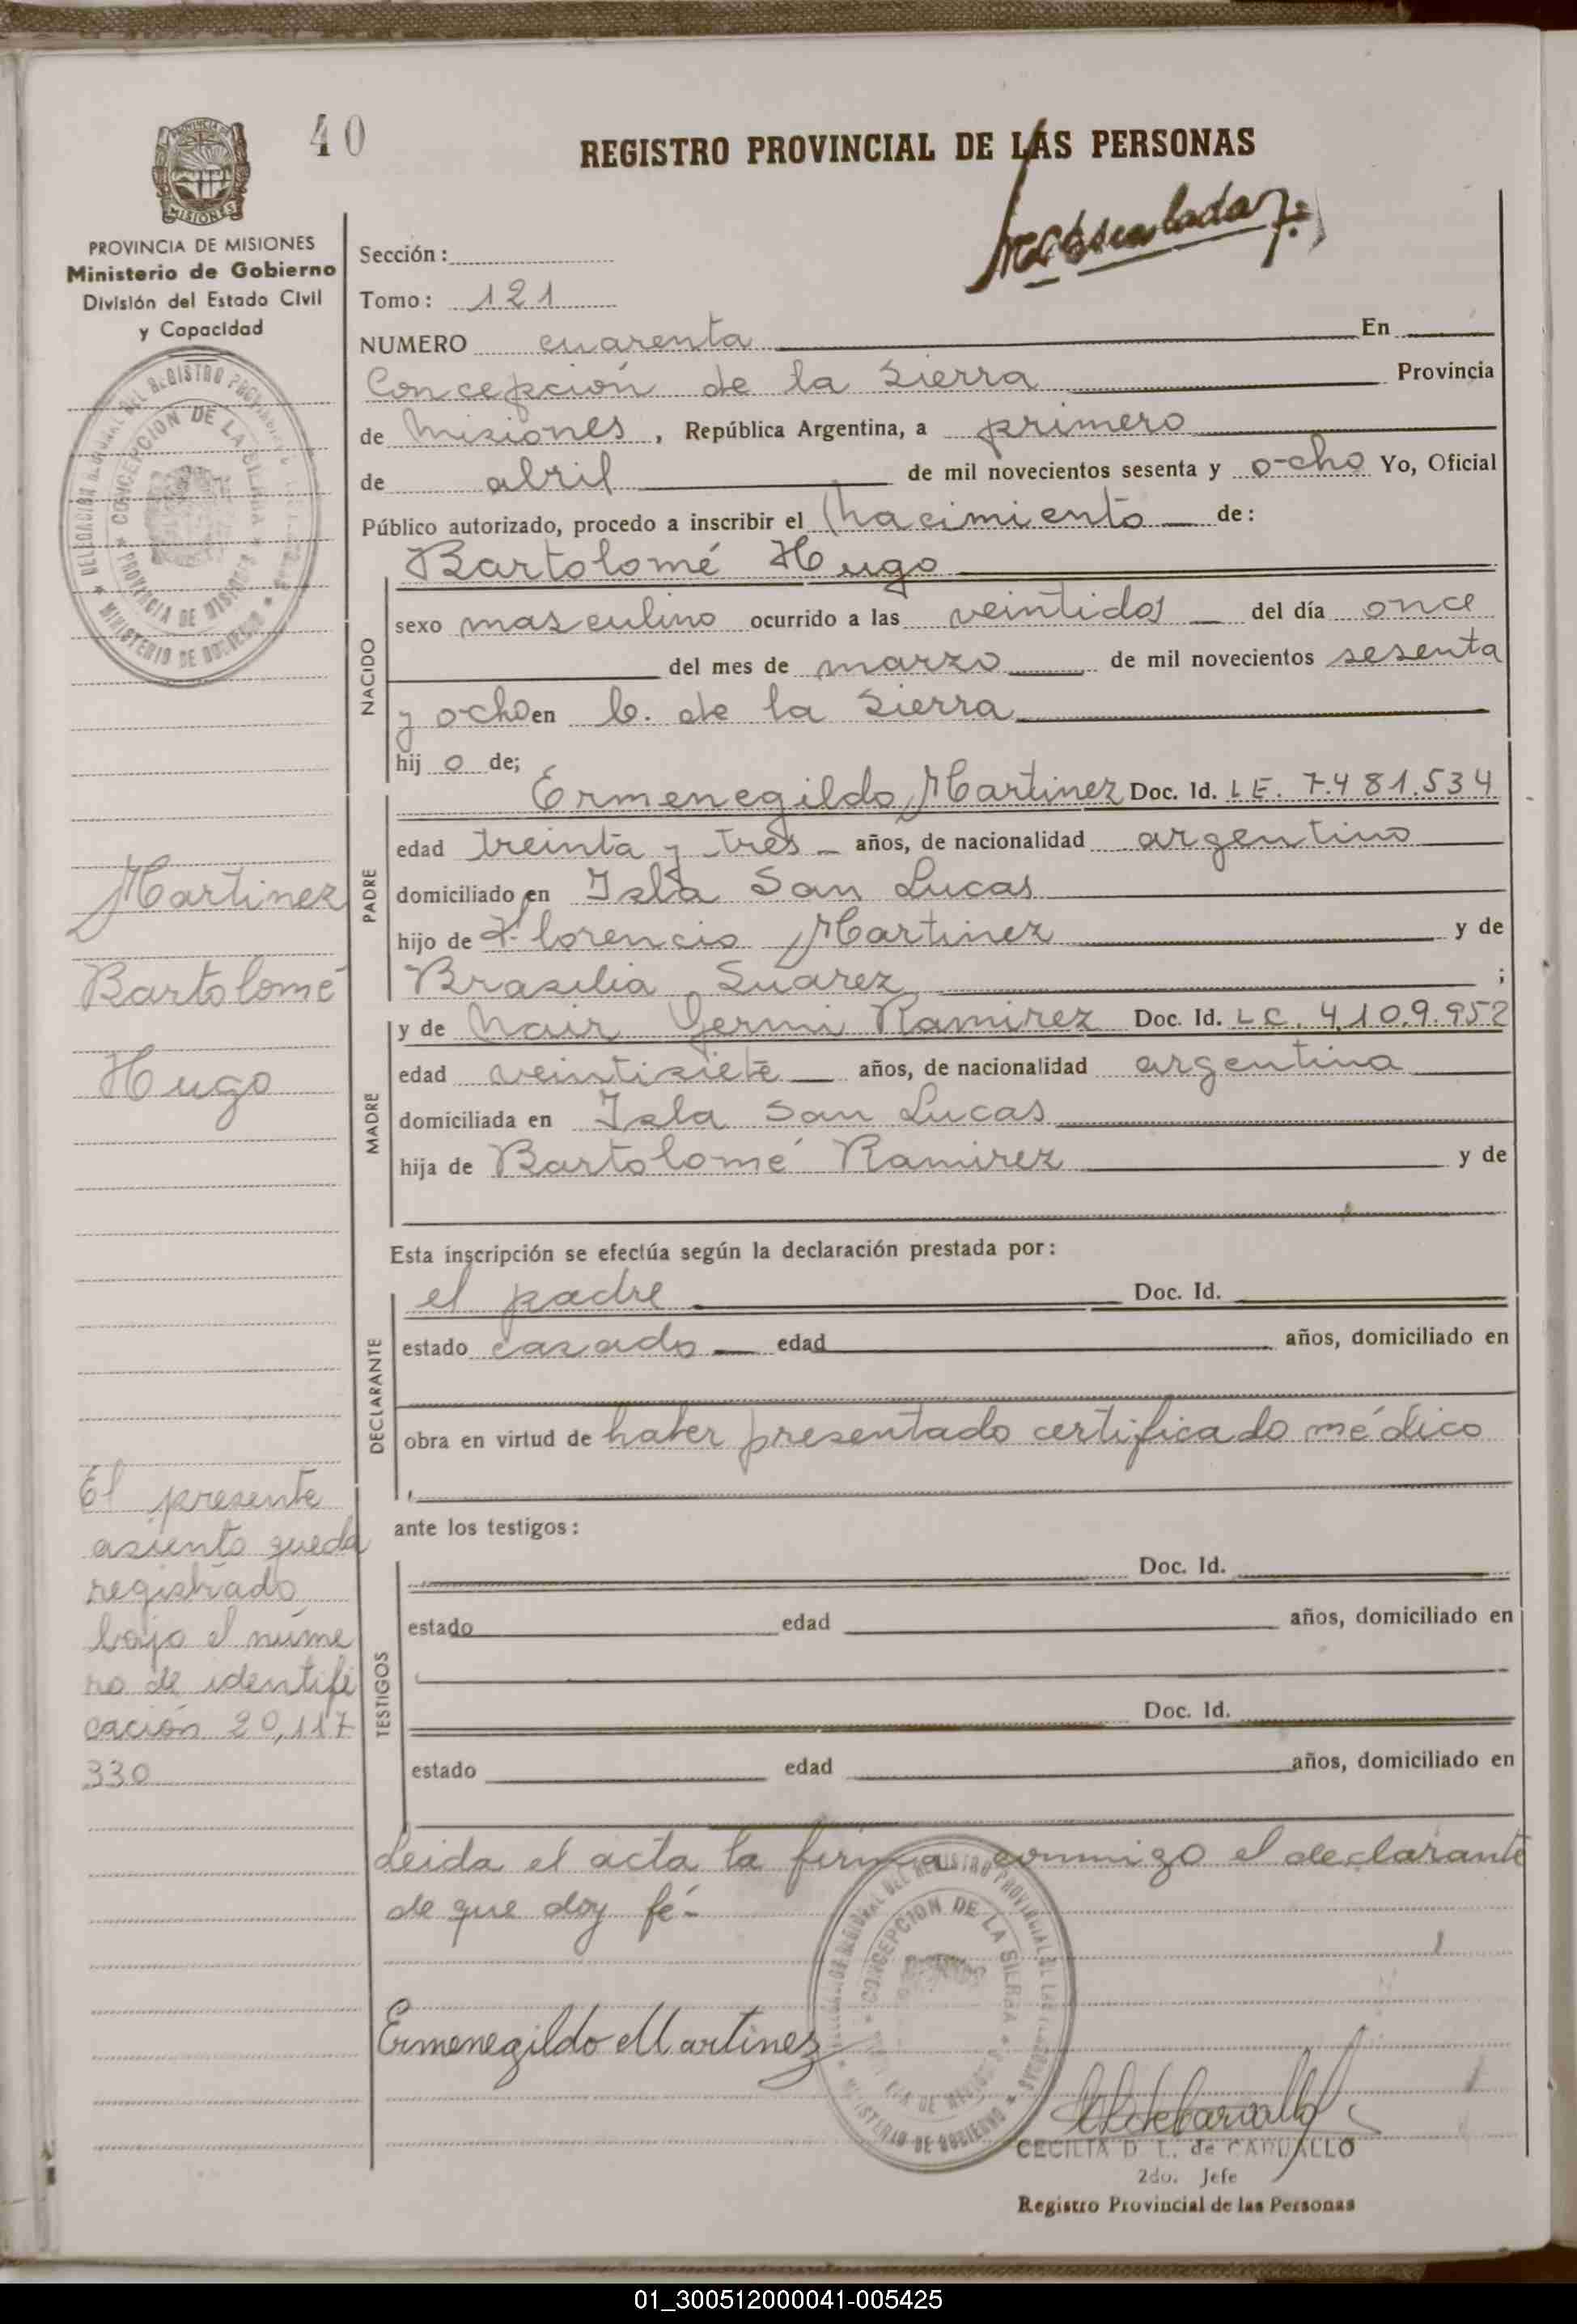 40
REGISTRO PROVINCIAL DE LAS PERSONAS
PROVINCIA DE MISIONES
Ministerio de Gobierno
División del Estado Civil
y Capacidad
Sección:
Tomo: 121
NUMERO cuarenta En
Concepción de la Sierra Provincia
de Misiones, República Argentina, a primero
de abril de mil novecientos sesenta y ocho Yo, Oficial
Público autorizado, procedo a inscribir el nacimiento de:
NACIDO
Bartolomé Hugo
sexo masculino ocurrido a las veintidos del día once
del mes de marzo de mil novecientos sesenta
y ocho en C. de la Sierra
hijo de;
PADRE
Ermenegildo Martinez Doc. Id. L E. 7.481.534
edad treinta y tres años, de nacionalidad argentino
domiciliado en Isla San Lucas
hijo de Florencio Martinez y de
Brasilia Suarez ;
MADRE
y de Nair Germi Ramirez Doc. Id. L C. 4.109.952
edad veintisiete años, de nacionalidad argentina
domiciliada en Isla San Lucas
hija de Bartolomé Ramirez y de
Esta inscripción se efectúa según la declaración prestada por:
DECLARANTE
el padre Doc. Id.
estado casado edad años, domiciliado en
obra en virtud de haber presentado certificado médico
ante los testigos:
TESTIGOS
Doc. Id.
estado edad años, domiciliado en
Doc. Id.
estado edad años, domiciliado en
Leida el acta la firma conmigo el declarante
de que doy fé-
Ermenegildo Martinez
CECILIA D. L. de CARVALLO
2do. Jefe
Registro Provincial de las Personas
Martinez
Bartolomé
Hugo
El presente
asiento queda
registrado
bajo el núme
ro de identifi
cación 20,117
330
CONCEPCION DE LA SIERRA
PROVINCIA DE MISIONES
MINISTERIO DE GOBIERNO
CONCEPCION DE LA SIERRA
MINISTERIO DE GOBIERNO
01_300512000041-005425